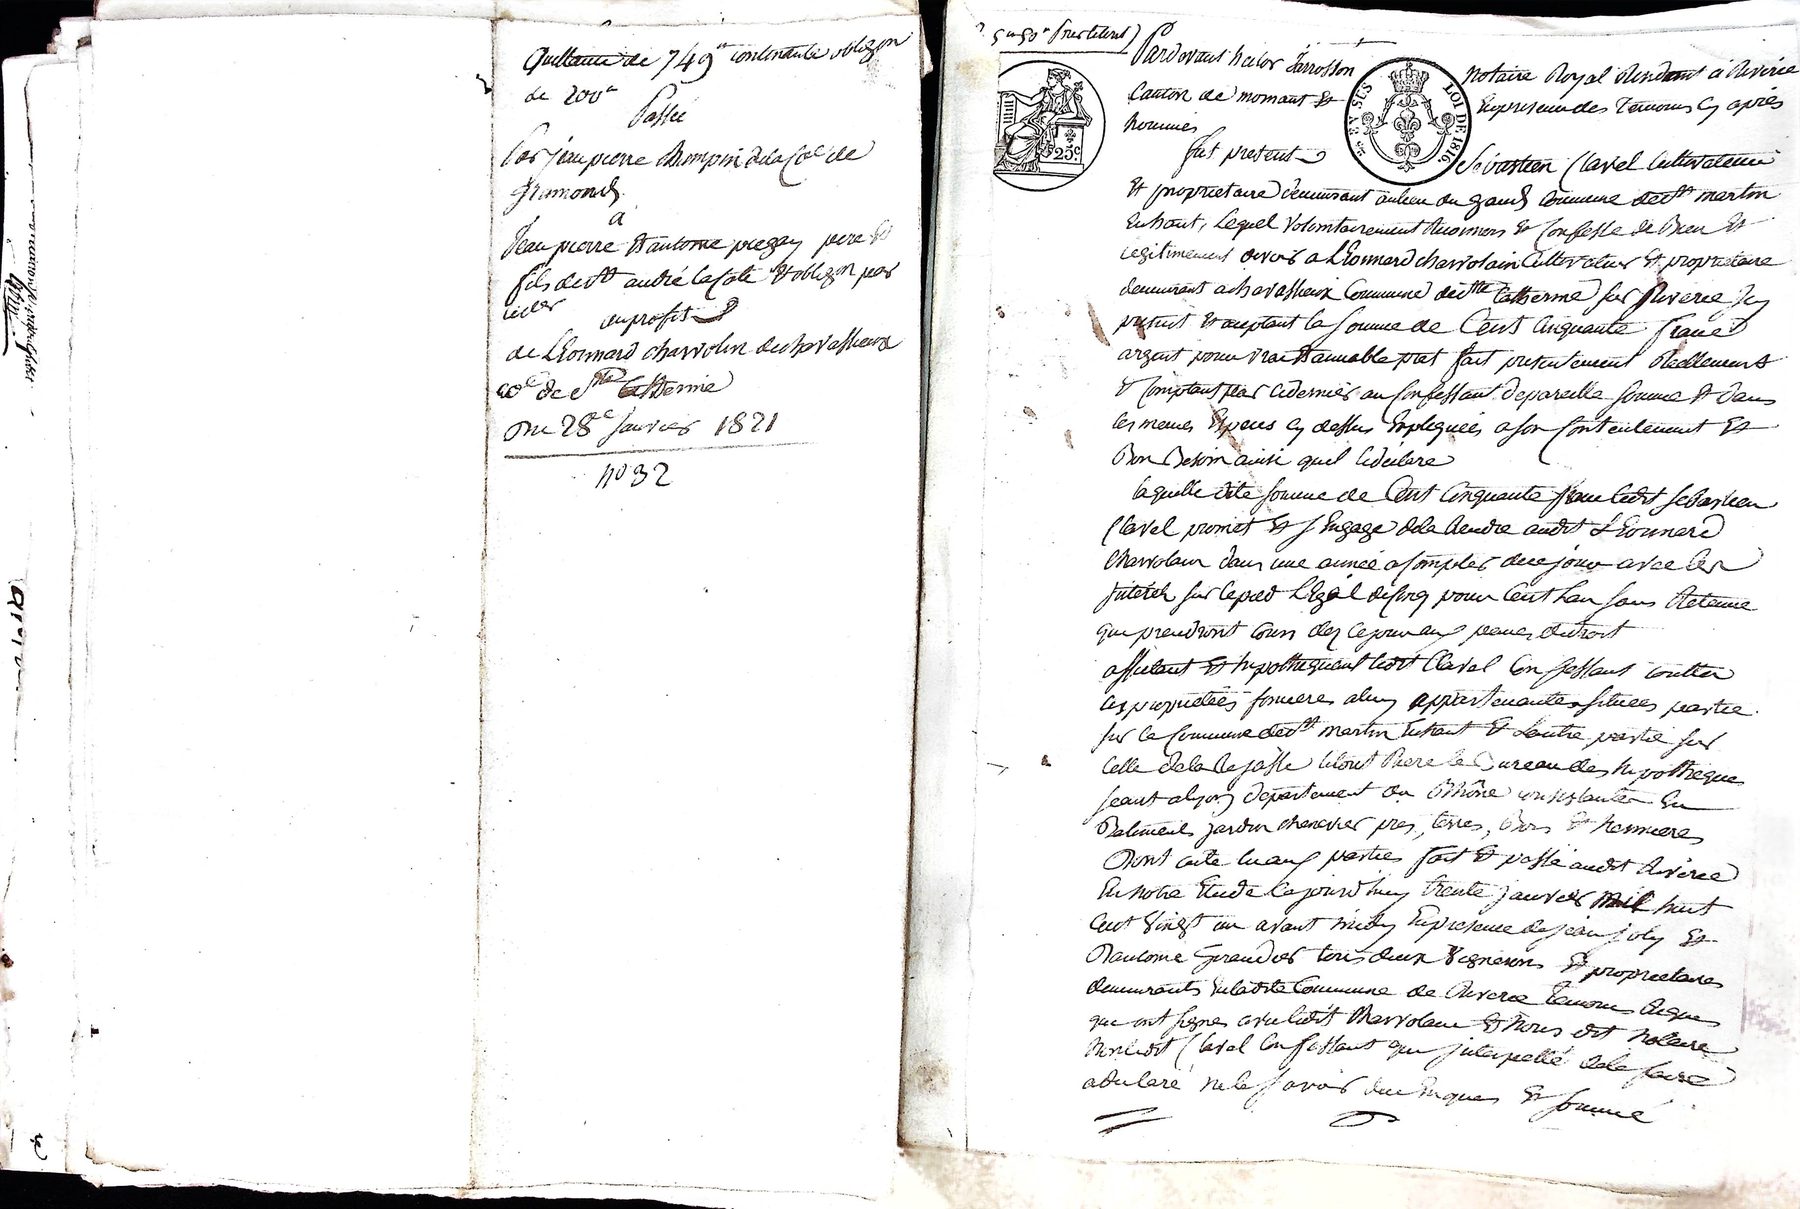 Quittance de 749 contenante obligon
de 200
Passée
Par jean pierre de la Coe de
Grimond
a
Jean pierre Et antoine pere Et
fils de st andré la Cote Et obligon par
au profit
de LEonnard charvolin de chavassieux
coe de ste Catherine
Du 28e janvier 1821
no 32
Pardevant hector Jarrosson
notaire Royal Residant a Riverie
Canton de mornant Et
En presence des Temoins cy après
nommés
25 c.
LOI DE 1816.
fut present
Sebastien Clavel Cultivateur
Et proprietaire demeurant au lieu du commune de st martin
En haut, Lequel volontairement Reconnois Et Confesse de Bien Et
legitimement devoir a LEonnard charvolain Cultivateur Et proprietaire
demeurant a chavassieux Commune de ste Catherine sur Riverie Icy
present Et aceptant la somme de Cent Cinquante franc
argent pour vrai Et amiable pret fait presentement Reellement
Et Comptant par ce dernier au Confessant de pareille somme Et dans
les memes Especes cy dessus Expliquées a son Contentement Et
Bon Besoin ainsi quil le declare
laquelle dite somme de Cent Cinquante franc ledit sebastien
Clavel promet Et sEngage de la Rendre audit LEonnard
Charvolain dans une année a Compter de ce jour avec les
Interêt sur le pied LEgal de Cinq pour Cent Lan sans Retenue
qui prendront cours dez ce jourdhuy peines de droit
affectant Et hypothequant ledit Clavel Confessant touttes
ces proprietées foncieres a luy appartenantes situées partie
sur la Commune de st martin En haut Et Lautre partie sur
Celle de la Rajasse le Bureau des hypotheques
seant a Lyon departement du Rhône consistantes En
Batiments jardin chenevier prés, terres, Bois Et hermieres
Dont acte lu aux parties fait Et passé audit Riverie
En notre Etude Ce jourdhuy trente janvier mil huit
Cent Vingt un avant midy En presence de jean joly Et
Dantoine Giraudier tous deux Vignerons Et proprietaires
demeurants En ladite Commune de Riverie Temoins Requis
qui ont signes avec ledit Charvolain Et Nous dit Notaire
Non ledit Clavel Confessant qui Interpellé de le faire
a declaré ne le Savoir de ce Enquis Et Sommé